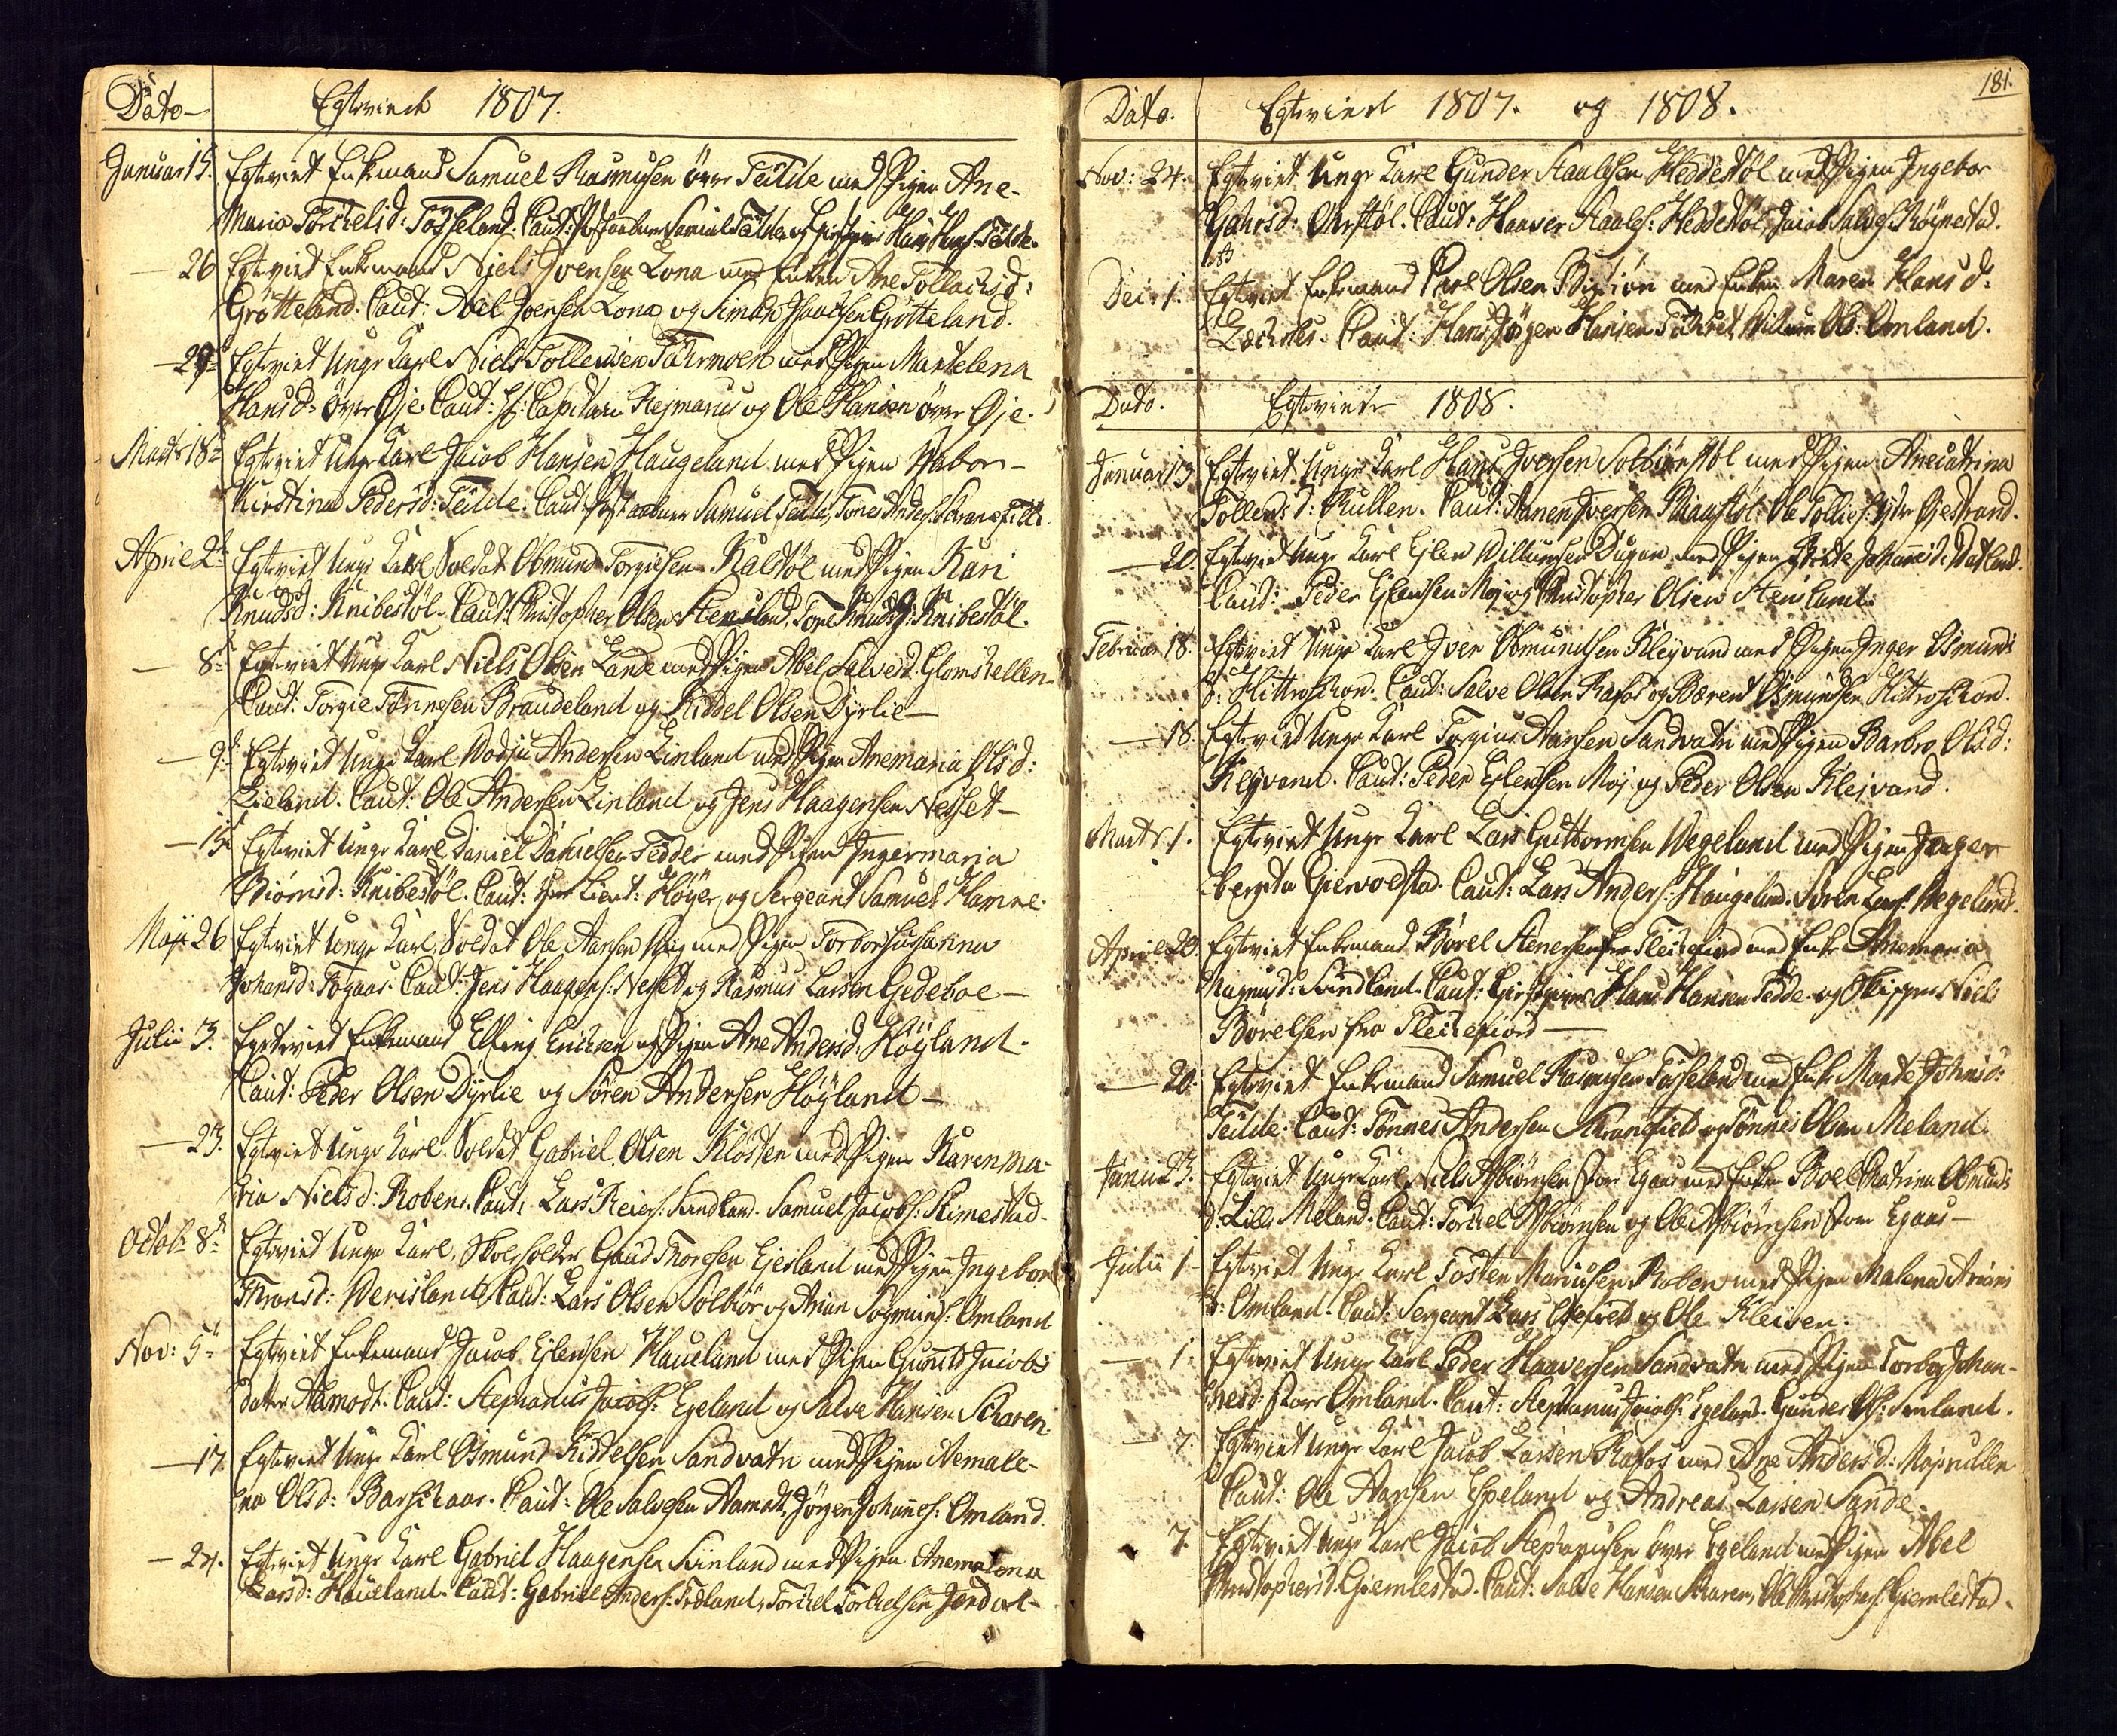 Dato
Egteviede 1807.
Januar 15. Egteviet Enkemand Samuel Rasmusen övre Feilde med Pigen Ane-
Maria Torkelsd: Tosseland. Caut: Samuel Feilde, og Hans Hans: Feilde.
— 26 Egteviet Enkemand Niels Joensen Lona med Enken Ane Tollachsd:
Grötteland. Caut: Abel Joensen Lona og Simon Isaachsen Grötteland.
— 29 Egteviet Unge Karl Niels Tollevsen med Pigen Mandelena
Hansd: övre Öje. Caut: Hr: Capitain Rejmarus og Ole Hansen övre Öje.
Marts 18de Egteviet Unge Karl Jacob Hansen Haugeland med Pigen Wabor-
Kirstina Pedersd: Feilde. Caut: Samuel Feilde, Tönes Anders:
April 2de Egteviet Unge Karl Soldat Obmund Torgiesen Kalstöl med Pigen Kari
Knudsd: Knibestöl. Caut: Christopher Olsen Stensland, Tore Knuds: Knibestöl.
— 8de Egteviet Unge Karl Niels Olsen Lande med Pigen Abel Salvesd. Glomstellen-
Caut: Torgie Tönnesen Braudeland og Siddel Olsen Dyrlie —
— 9de Egteviet Unge Karl Andersen Linland med Pigen Anemaria Olsd:
Lieland. Caut: Ole Andersen Linland og Jens Haagensen Nesset —
— 15 Egteviet Unge Karl Daniel Danielsen Fedde med Pigen Ingermaria
Biörnsd: Knibestöl. Caut: Herr Lieut: Höyer, og Sergeant Samuel Hamre.
Maji 26 Egteviet Unge Karl, Soldat Ole Aansen med Pigen Torborsusanna
Johansd: Fogaas. Caut: Jens Haagens: Nesset og Rasmus Larsen Gedeboe —
Julii 3. Egteviet Enkemand Elling Ericksen og Pigen Ane Andersd. Höyland.
Caut: Peder Olsen Dyrlie og Sören Andersen Höyland —
— 23. Egteviet Unge Karl. Soldat Gabriel Olsen Klösten med Pigen Karenma-
ria Nielsd: Roben. Caut: Lars Reiers: Samuel Jacobs: Rimestad-
Octob: 8de Egteviet Unge Karl, Skoleholder Gaud Thorsen Ejesland med Pigen Ingebor
Tronsd: Werisland, Caut: Lars Olsen Solbiör og Arian Omland
Nov: 5de Egteviet Enkemand Jacob Ejlensen Haueland med Pigen Gunild Jacobs
dater Aamodt. Caut: Stephanus Jacobs: Egeland og Salve Hansen Scharen.
— 17. Egteviet Unge Karl Osmund Kittelsen Sandvatn med Pigen Nemale-
na Olsd: Barschaar. Caut: Ole Salvesen Aamodt, Jörgen Johannes: Omland.
— 24. Egteviet Unge Karl Gabriel Haagensen Svinland med Pigen Anemalena
Larsd: Haueland. Caut: Gabriel Anders: Fedland, Torkel Torkelsen Jerdal —
181.
Dato. Egteviede 1807. og 1808.
Nov: 24. Egteviet Unge Karl Gunder Staalesen Heddestöl med Pigen Ingebor
Gahrsd: Ohrstöl. Caut: Haaver Staales: Heddestöl, Jacob Salves: Röynestad.
Dec: 1. Egteviet Enkemand Carl Olsen med Enken Maren Hansd:
Caut: Hans Jörgen Hansen Willum Ols: Omland.
Dato. Egteviede 1808.
Januar 13 Egteviet Unge Karl Hans Iversen Solbiörstöl med Pigen Anecatrina
Tollevsd: Rullen. Caut: Aanen Iversen Ole Tollies: Öjestrand.
— 20. Egteviet Unge Karl Ejlev Willumsen Dugan med Pigen Johannisd: Watland.
Caut: Peder Ejlensen Moj og Christopher Olsen Stensland.
Februar 18. Egteviet Unge Karl Iver Obmundsen Klejvand med Pigen Inger Osmunds
d: Hittroschou. Caut: Salve Olsen Rafos og Bærent Osmundsen Hittroschou.
— 18. Egteviet Unge Karl Torgius Aansen Sandvatn med Pigen Barbro Olsd:
Klejvand. Caut: Peder Ejlensen Moj og Peder Olsen Klejvand.
Marts 1. Egteviet Unge Karl Lars Guttormsen Wegeland med Pigen Inger
Giervoldstad. Caut: Lars Anders: Haugeland. Sören Lars: Wegeland.
April 20. Egteviet Enkemand Börel Stenersen fra Flechefiord med Enke Anemaria
Caut: Hans Hansen Fedde og Skipper Niels
Börelsen fra Flechefiord —
— 20. Egteviet Enkemand Samuel Rasmusen Tosseland med Enke Marte Johnsd:
Feilde. Caut: Tönnes Andersen og Tönnes Olsen Meland.
Junii 23. Egteviet Unge Karl Niels Asbiörnsen Store Egaas med Enken Boel Catrina Obmunds
d: Lille Meland. Caut: Torkel Asbiörnsen og Ole Asbiörnsen Store Egaas —
Julii 1. Egteviet Unge Karl Tosten Mariusen Roben med Pigen Malena Arians
d: Omland. Caut: Sergeant Lars og Ole Kleiven.
— 1. Egteviet Unge Karl Peder Haaversen Sandvatn med Pigen Torbor Johan-
nesd: Store Omland. Caut: Stephanus Jacobs: Egeland. Gunder Ols: Omland.
— 7. Egteviet Unge Karl Jacob Larsen Rafos med Ane Andersd: Mojrullen
Caut: Ole Aansen Espeland og Andreas Larsen Sande.
7. Egteviet Unge Karl Jacob Stephansen övre Egeland med Pigen Abel
Christophersd. Giemlestad. Caut: Salve Hansen Scharen, Ole Christophers: Giemlestad.